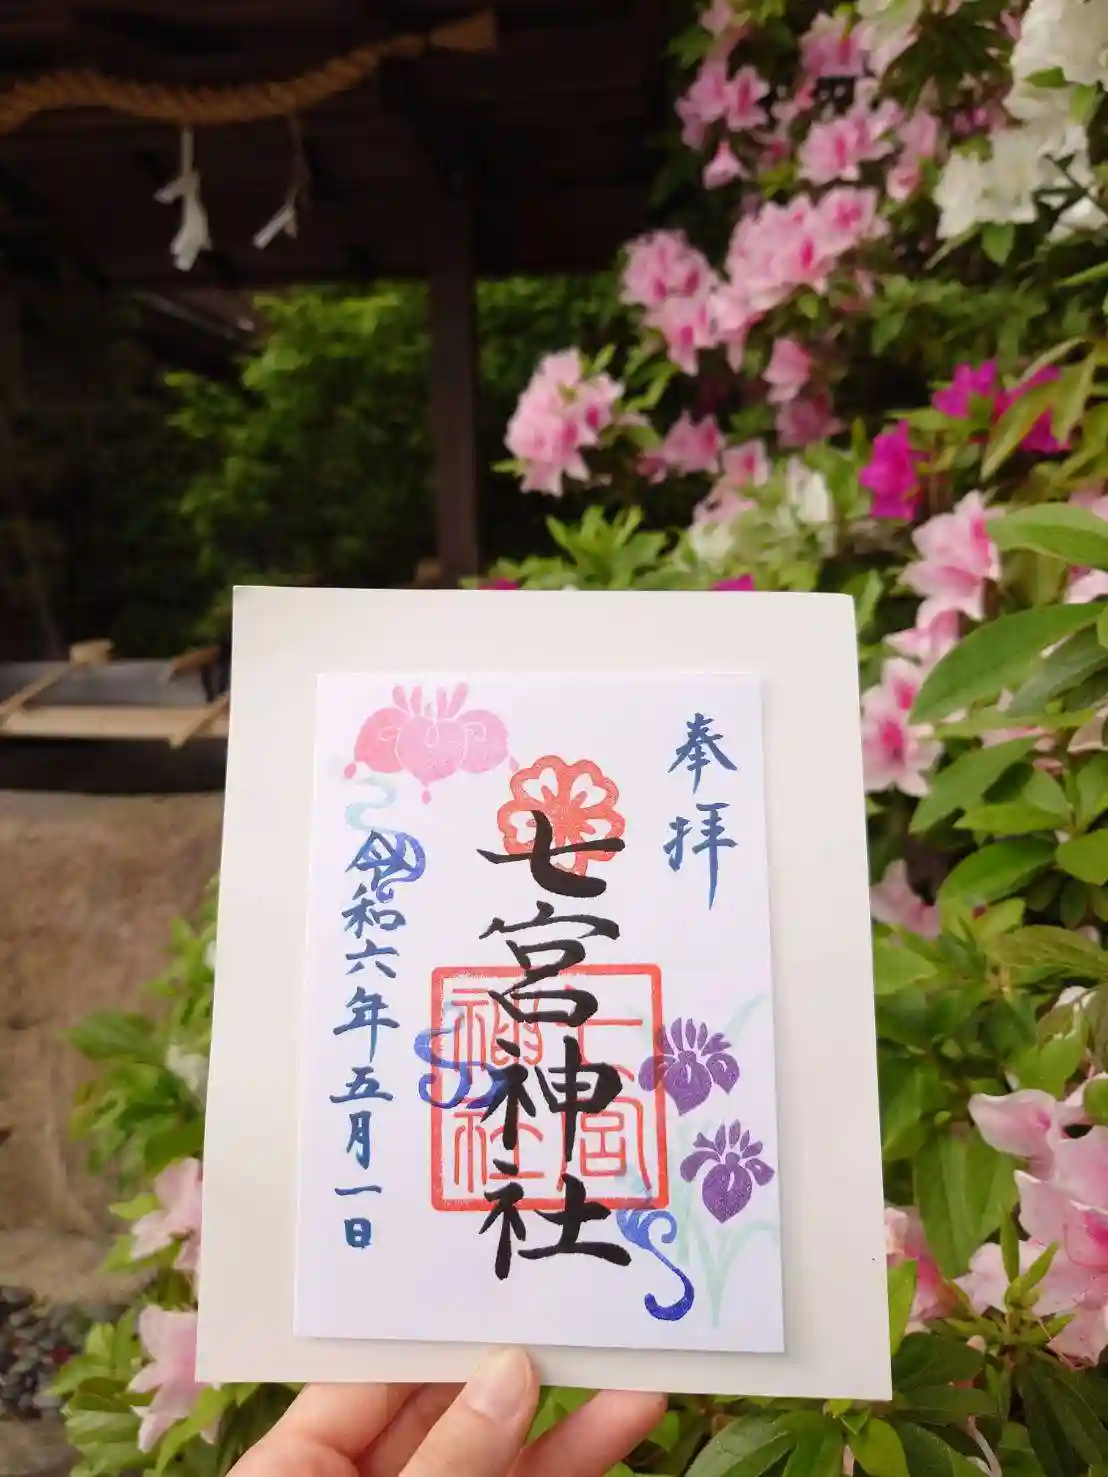 奉拝
七宮神社
七宮
神社
令和六年五月一日